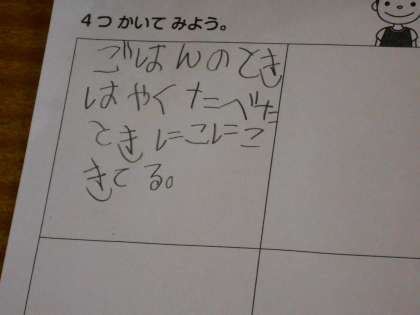 4つ かいて みよう。
ごはんのとき
はやくたべた
ときにこにこ
きてる。